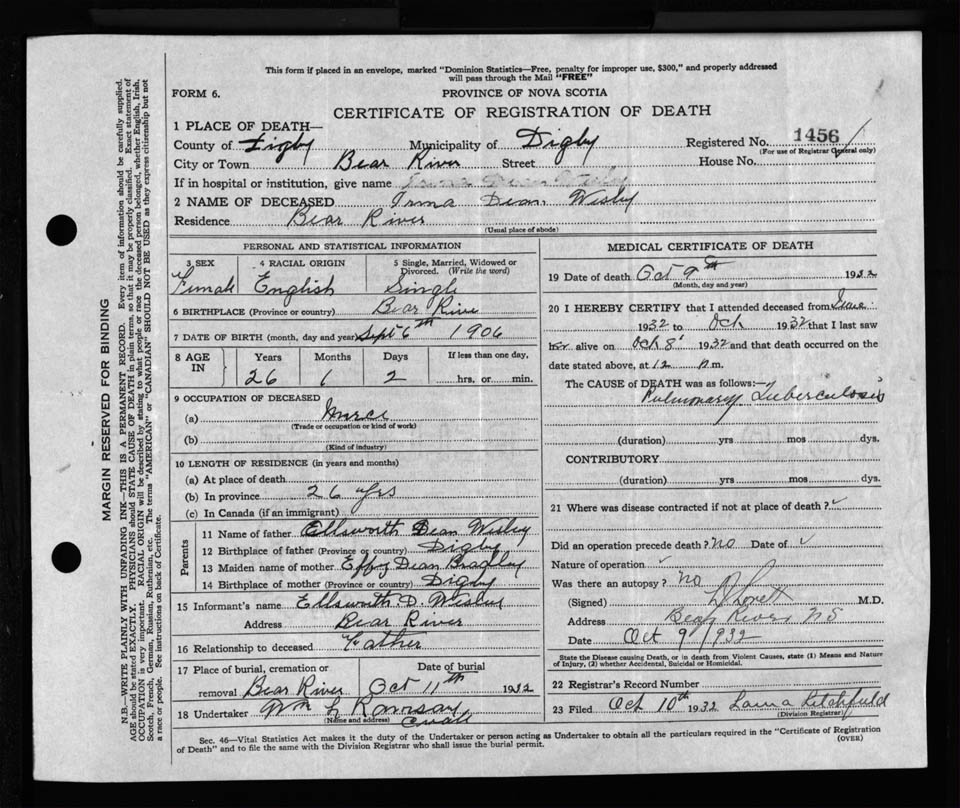 This form if placed in an envelope, marked "Dominion Statistics—Free, penalty for improper use, $300," and properly addressed
will pass through the Mail "FREE"
FORM 6.
PROVINCE OF NOVA SCOTIA
CERTIFICATE OF REGISTRATION OF DEATH
1 PLACE OF DEATH—
County of Digby Municipality of Digby Registered No. 1456
(For use of Registrar General only)
City or Town Bear River Street House No.
If in hospital or institution, give name
2 NAME OF DECEASED Irma Dean Wisby
Residence Bear River
(Usual place of abode)
PERSONAL AND STATISTICAL INFORMATION
3 SEX 4 RACIAL ORIGIN 5 Single, Married, Widowed or Divorced. (Write the word)
Female English Single
6 BIRTHPLACE (Province or country) Bear River
7 DATE OF BIRTH (month, day and year) Sept 6th 1906
8 AGE IN Years Months Days If less than one day,
26 1 2 hrs. or min.
9 OCCUPATION OF DECEASED
(a)
(Trade or occupation or kind of work)
(b)
(Kind of industry)
10 LENGTH OF RESIDENCE (in years and months)
(a) At place of death
(b) In province 26 yrs
(c) In Canada (if an immigrant)
Parents
11 Name of father Ellsworth Dean Wisby
12 Birthplace of father (Province or country) Digby
13 Maiden name of mother Effy Dean Bradley
14 Birthplace of mother (Province or country) Digby
15 Informant's name Ellsworth D. Wisby
Address Bear River
16 Relationship to deceased Father
17 Place of burial, cremation or removal Bear River Date of burial Oct 11th 1932
18 Undertaker Wm L Ramsay
(Name and address)
MEDICAL CERTIFICATE OF DEATH
19 Date of death Oct 9th 1932
(Month, day and year)
20 I HEREBY CERTIFY that I attended deceased from June
1932 to Oct 1932 that I last saw
her alive on Oct 8 1932 and that death occurred on
date stated above, at 12 m.
The CAUSE of DEATH was as follows:—
Pulmonary Tuberculosis
(duration) yrs mos dys.
CONTRIBUTORY
(duration) yrs mos dys.
21 Where was disease contracted if not at place of death? ✓
Did an operation precede death? No Date of ✓
Nature of operation ✓
Was there an autopsy? No
(Signed) Lovett M.D.
Address Bear River NS
Date Oct 9/1932
State the Disease causing Death, or in death from Violent Causes, state (1) Means and Nature
of Injury, (2) whether Accidental, Suicidal or Homicidal.
22 Registrar's Record Number
23 Filed Oct 10th 1932 Litchfield
(Division Registrar)
Sec. 46—Vital Statistics Act makes it the duty of the Undertaker or person acting as Undertaker to obtain all the particulars required in the "Certificate of Registration
of Death" and to file the same with the Division Registrar who shall issue the burial permit. (OVER)
MARGIN RESERVED FOR BINDING
N.B.—WRITE PLAINLY WITH UNFADING INK—THIS IS A PERMANENT RECORD. Every item of information should be carefully supplied.
AGE should be stated EXACTLY. PHYSICIANS should STATE CAUSE OF DEATH in plain terms, so that it may be properly classified. Exact statement of
OCCUPATION is very important. RACIAL ORIGIN will be described by stating to what people or race the deceased person belonged, whether English, Irish,
Scotch, French, German, Russian, Ruthenian, etc. The terms "AMERICAN" or "CANADIAN" SHOULD NOT BE USED as they express citizenship but not
a race or people. See instructions on back of Certificate.